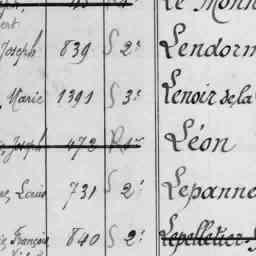 Le Monn
bert
Joseph 839 S 2e Lendorm
Marie 1391 S 3e Lenoir de la
Joseph 472 R 1er Léon
Louis 731 S 2e Lepanne
François 840 S 2e Lepelletier